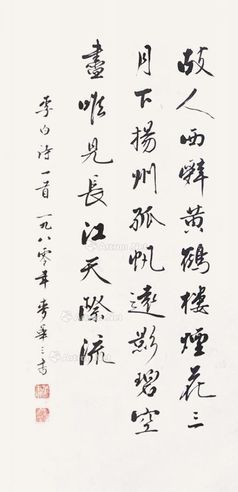 故人西辭黃鶴樓煙花三
月下揚州孤帆遠影碧空
盡唯見長江天際流
李白詩一首 一九八零年 麥華三書